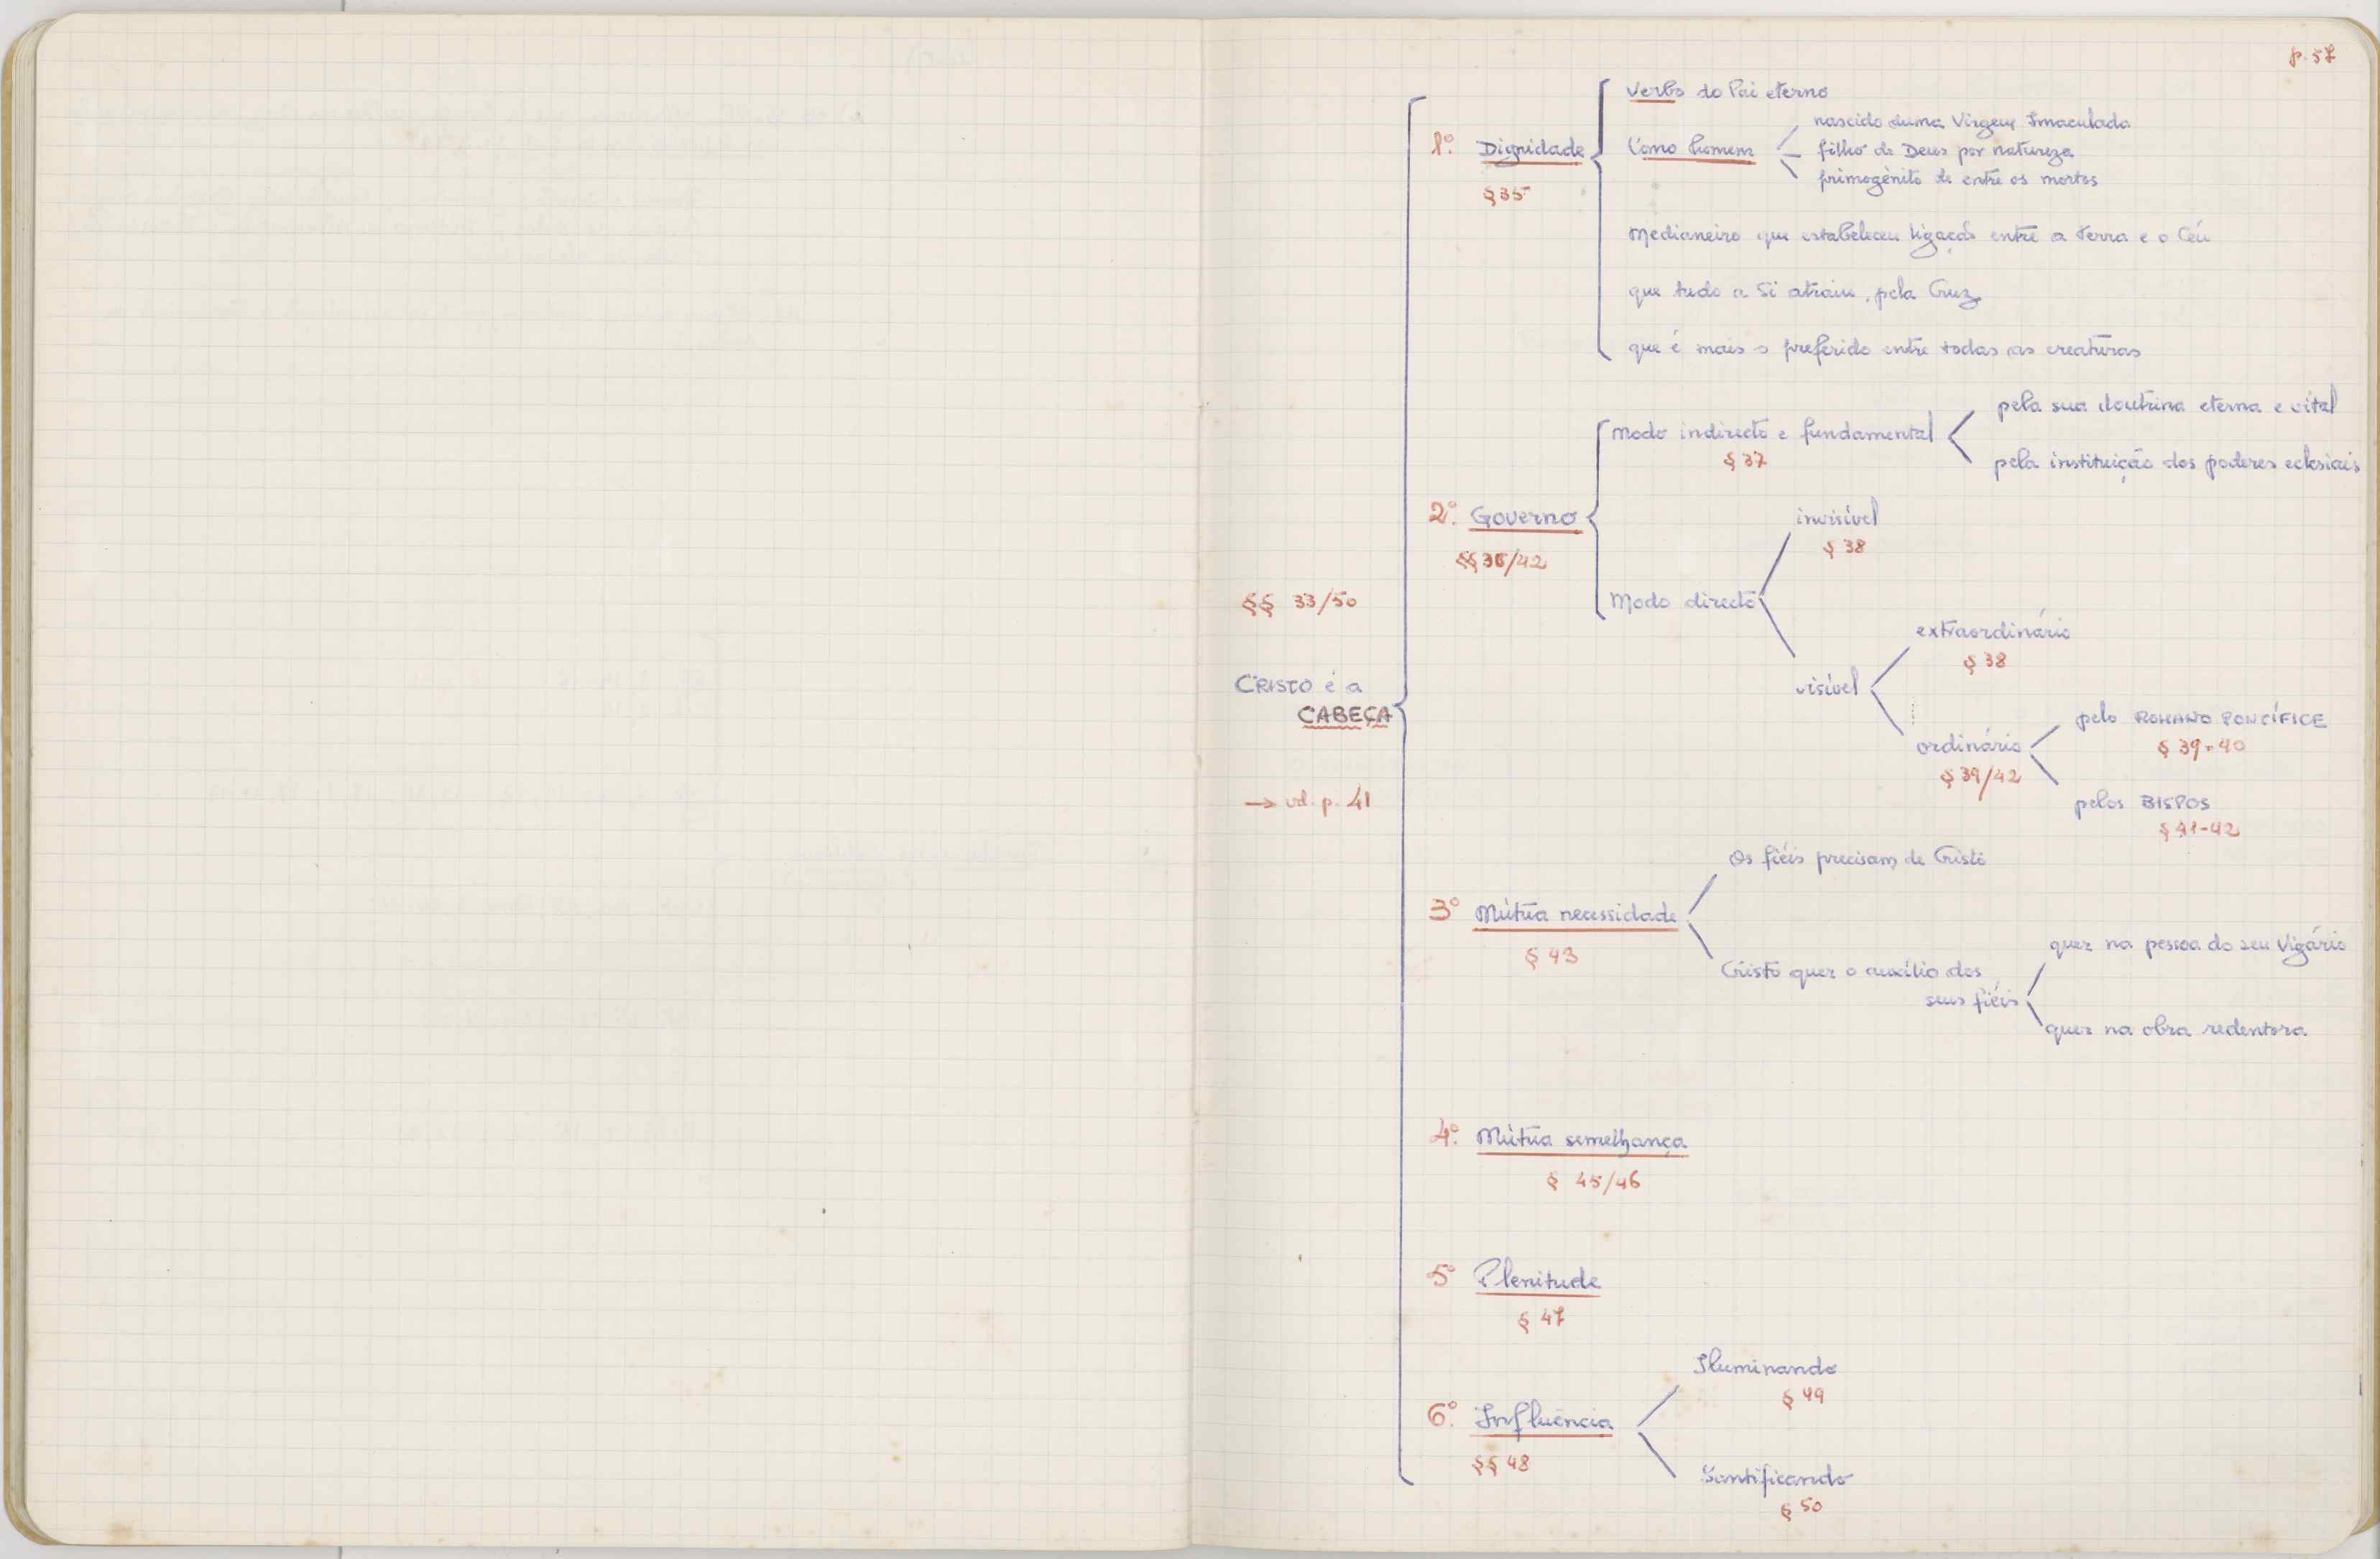 p. 57
§§ 33/50
CRISTO é a
CABEÇA
→ vd. p. 41
1º. Dignidade
§ 35
Verbo do Pai eterno
Como homem
nascido duma Virgem Imaculada
filho de Deus por natureza
primogénito de entre os mortos
Medianeiro que estabeleceu ligação entre a Terra e o Céu
que tudo a Si atraiu, pela Cruz
que é mais o preferido entre todas as creaturas
2º. Governo
§§ 36/42
Modo indirecto e fundamental
§ 37
pela sua doutrina eterna e vital
pela instituição dos poderes eclesiais
Modo directo
invisível
§ 38
visível
extraordinário
§ 38
ordinário
§ 39/42
pelo ROMANO PONTÍFICE
§ 39-40
pelos BISPOS
§ 41-42
3º Mútua necessidade
§ 43
Os fiéis precisam de Cristo
Cristo quer o auxílio dos
seus fiéis
quer na pessoa do seu Vigário
quer na obra redentora
4º. Mútua semelhança
§ 45/46
5º Plenitude
§ 47
6º. Influência
§§ 48
Iluminando
§ 49
Santificando
§ 50